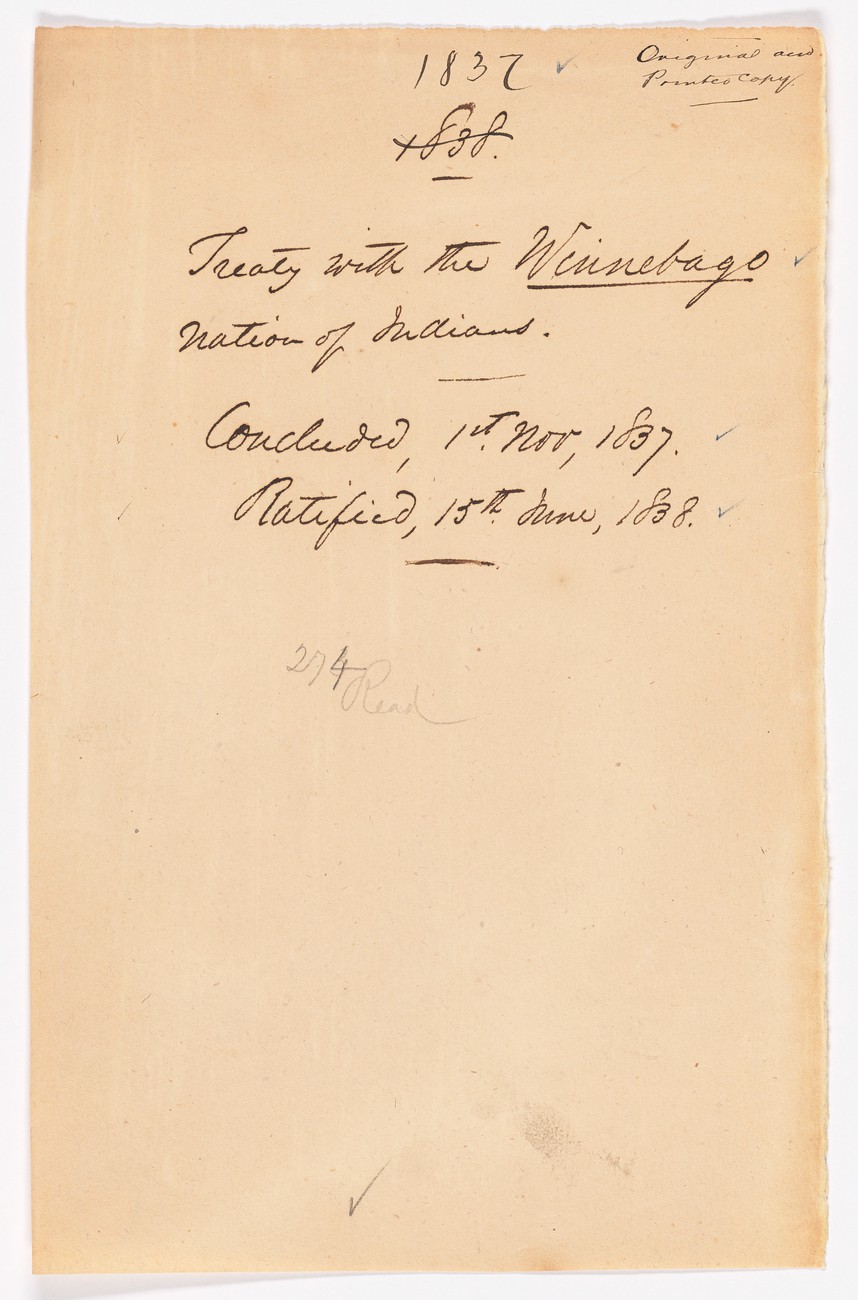 1837
Original and
Printed Copy.
1838.
Treaty with the Winnebago
nation of Indians.
Concluded, 1st. Nov, 1837.
Ratified, 15th. June, 1838.
274
Read